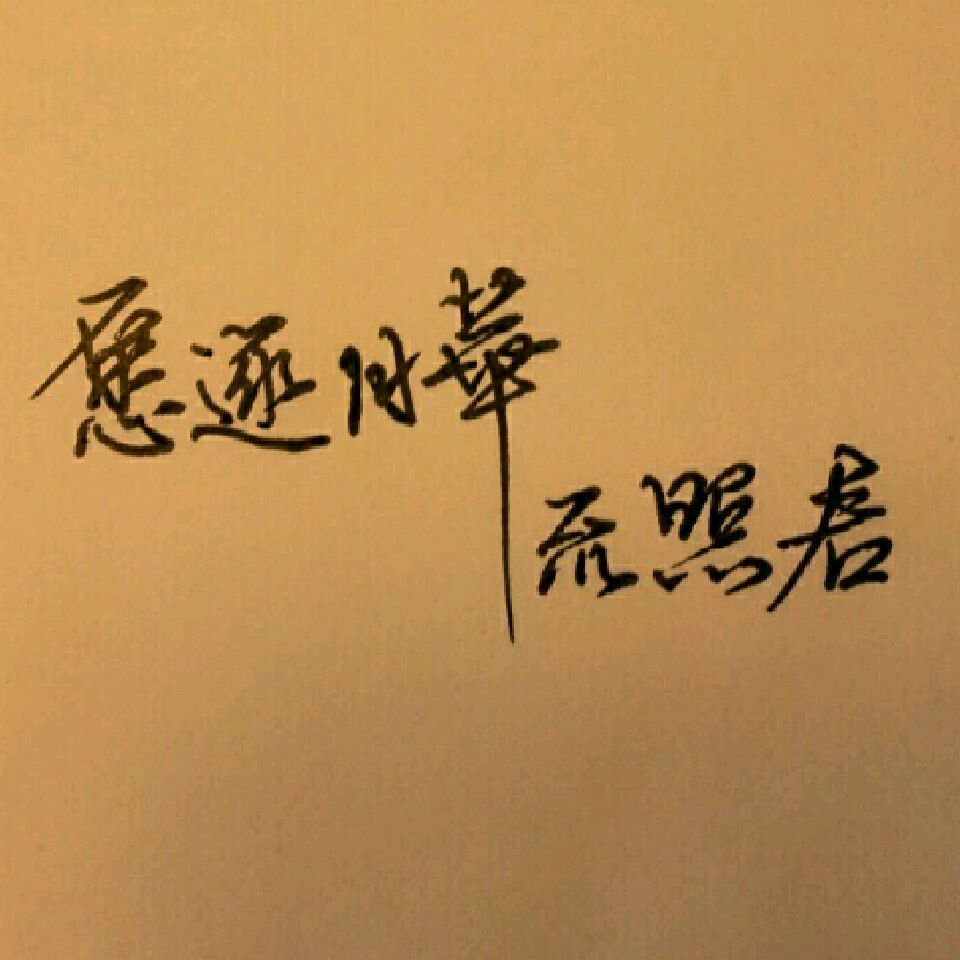 愿逐月華
流照君